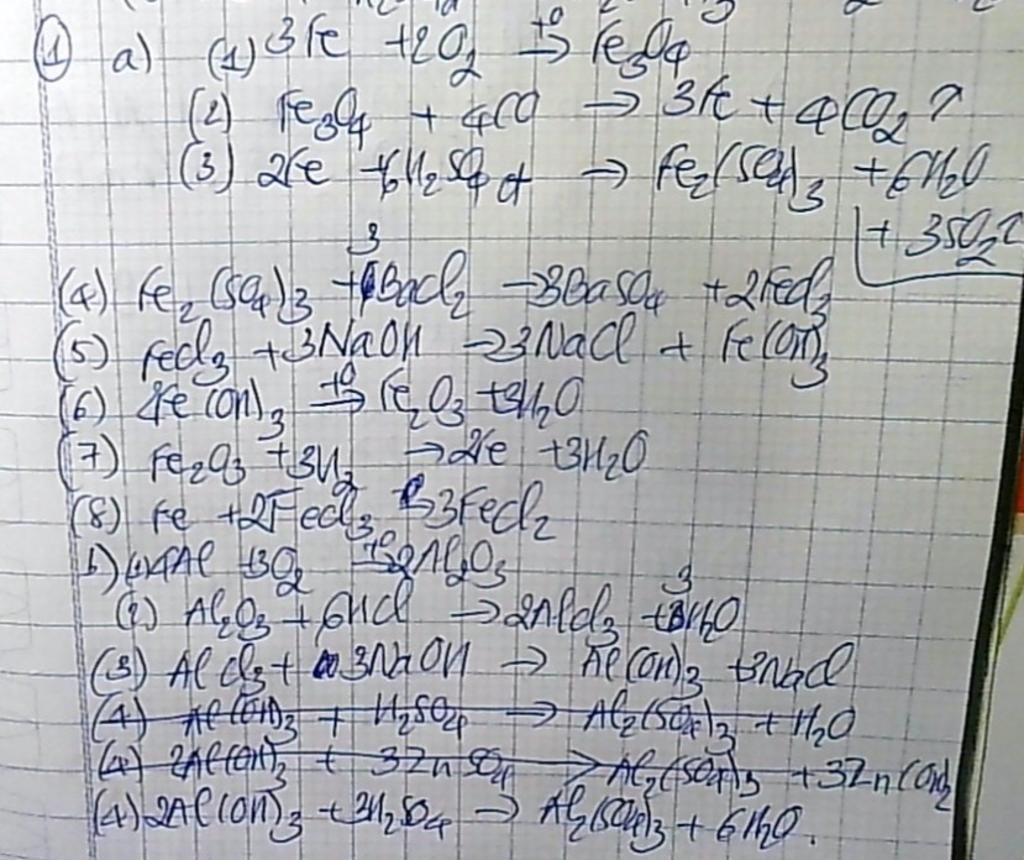 ① a) (1) 3Fe + 2O₂ →(t⁰) Fe₃O₄
(2) Fe₃O₄ + 4CO → 3Fe + 4CO₂ ↑
(3) 2Fe + 6H₂SO₄ đ → Fe₂(SO₄)₃ + 6H₂O
+ 3SO₂ ↑
(4) Fe₂(SO₄)₃ + 3BaCl₂ → 3BaSO₄ + 2FeCl₃
(5) FeCl₃ + 3NaOH → 3NaCl + Fe(OH)₃
(6) 2Fe(OH)₃ →(t⁰) Fe₂O₃ + 3H₂O
(7) Fe₂O₃ + 3H₂ → 2Fe + 3H₂O
(8) Fe + 2FeCl₃ → 3FeCl₂
b) (1) 4Al + 3O₂ →(t⁰) 2Al₂O₃
(2) Al₂O₃ + 6HCl → 2AlCl₃ + 3H₂O
(3) AlCl₃ + 3NaOH → Al(OH)₃ + 3NaCl
(4) Al(OH)₃ + H₂SO₄ → Al₂(SO₄)₃ + H₂O
(4) 2Al(OH)₃ + 3ZnSO₄ → Al₂(SO₄)₃ + 3Zn(OH)₂
(4) 2Al(OH)₃ + 3H₂SO₄ → Al₂(SO₄)₃ + 6H₂O.